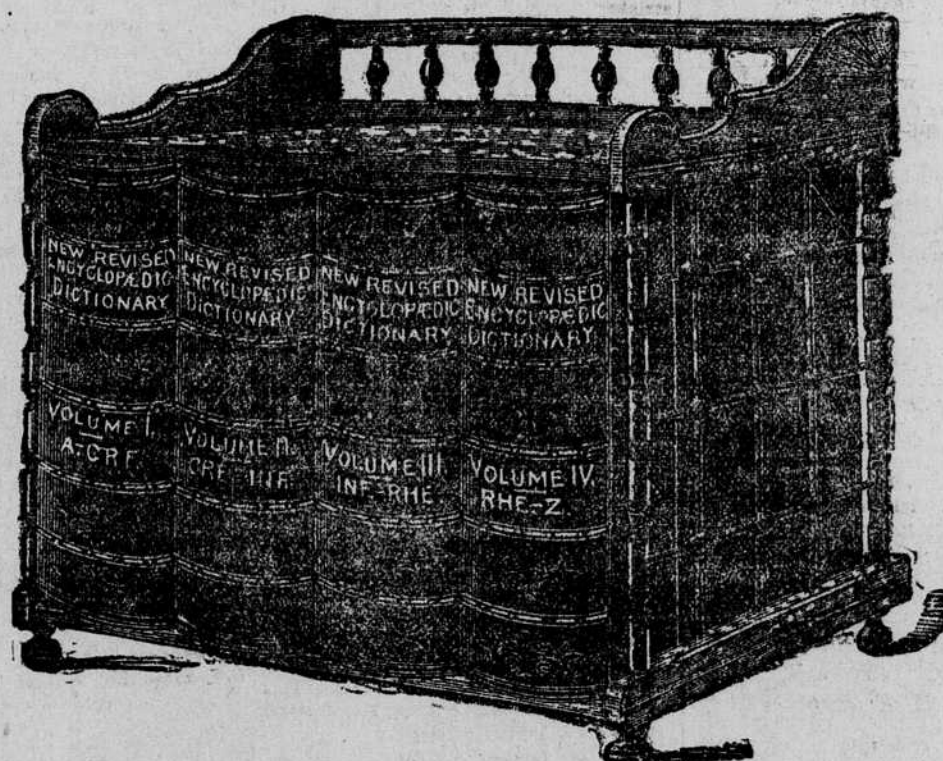 NEW REVISED
ENCYCLOPÆDIC
DICTIONARY
VOLUME I.
A-CRF.
NEW REVISED
ENCYCLOPÆDIC
DICTIONARY
VOLUME II.
CRF-INF.
NEW REVISED
ENCYCLOPÆDIC
DICTIONARY
VOLUME III
INF-RHE.
NEW REVISED
ENCYCLOPÆDIC
DICTIONARY
VOLUME IV.
RHE-Z.